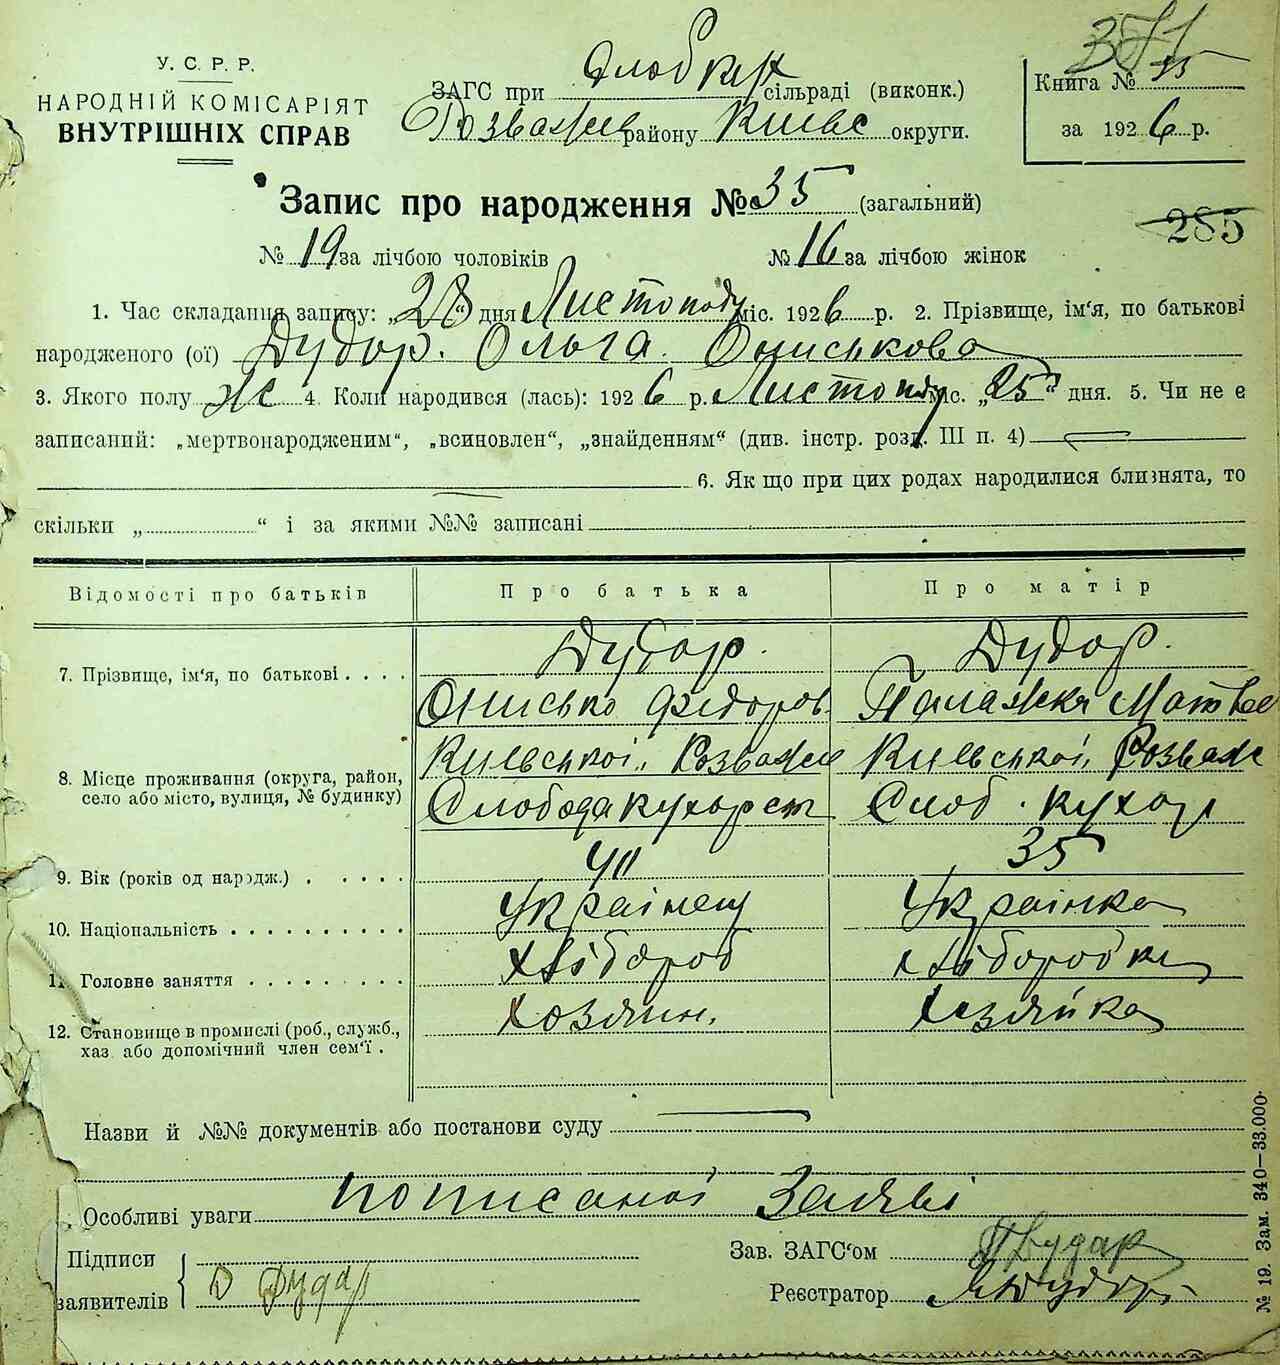 371
У. С. Р. Р.
НАРОДНІЙ КОМІСАРІЯТ
ВНУТРІШНІХ СПРАВ
ЗАГС при сільраді (виконк.)
Розважев району Киевс округи.
Книга № 35
за 1926 р.
Запис про народження № 35 (загальний)
285
№ 19 за лічбою чоловіків № 16 за лічбою жінок
1. Час складання запису: „28“ дня Листопаду міс. 1926 р. 2. Прізвище, ім‘я, по батькові
народженого (ої) Дудар. Ольга. Ониськова
3. Якого полу Ж 4. Коли народився (лась): 1926 р. Листопаду міс. „25“ дня. 5. Чи не є
записаний: „мертвонародженим“, „всиновлен“, „знайденням“ (див. інстр. розд. III п. 4)
6. Як що при цих родах народилися близнята, то
скільки „ “ і за якими №№ записані
Відомості про батьків Про батька Про матір
7. Прізвище, ім‘я, по батькові . . . . Дудар. Дудар.
Онисько Федоров Палажка Матвее
8. Місце проживання (округа, район, Киевської, Розваже Киевської, Розваж
село або місто, вулиця, № будинку) Слобода кухарст Слоб. кухар
9. Вік (років од народж.) . . . . . 40 35
10. Національність . . . . . . . . . . Украінец Украінка
11. Головне заняття . . . . . . . . . Хлібороб хліборобка
12. Становище в промислі (роб., служб., Хозяин. Хозяйка
хаз. або допомічний член сем‘ї .
Назви й №№ документів або постанови суду
Особливі уваги Пописаної Заяві
Підписи
заявителів Д Дудар
Зав. ЗАГС‘ом Дудар
Реєстратор
№ 19. Зам. 340—33.000